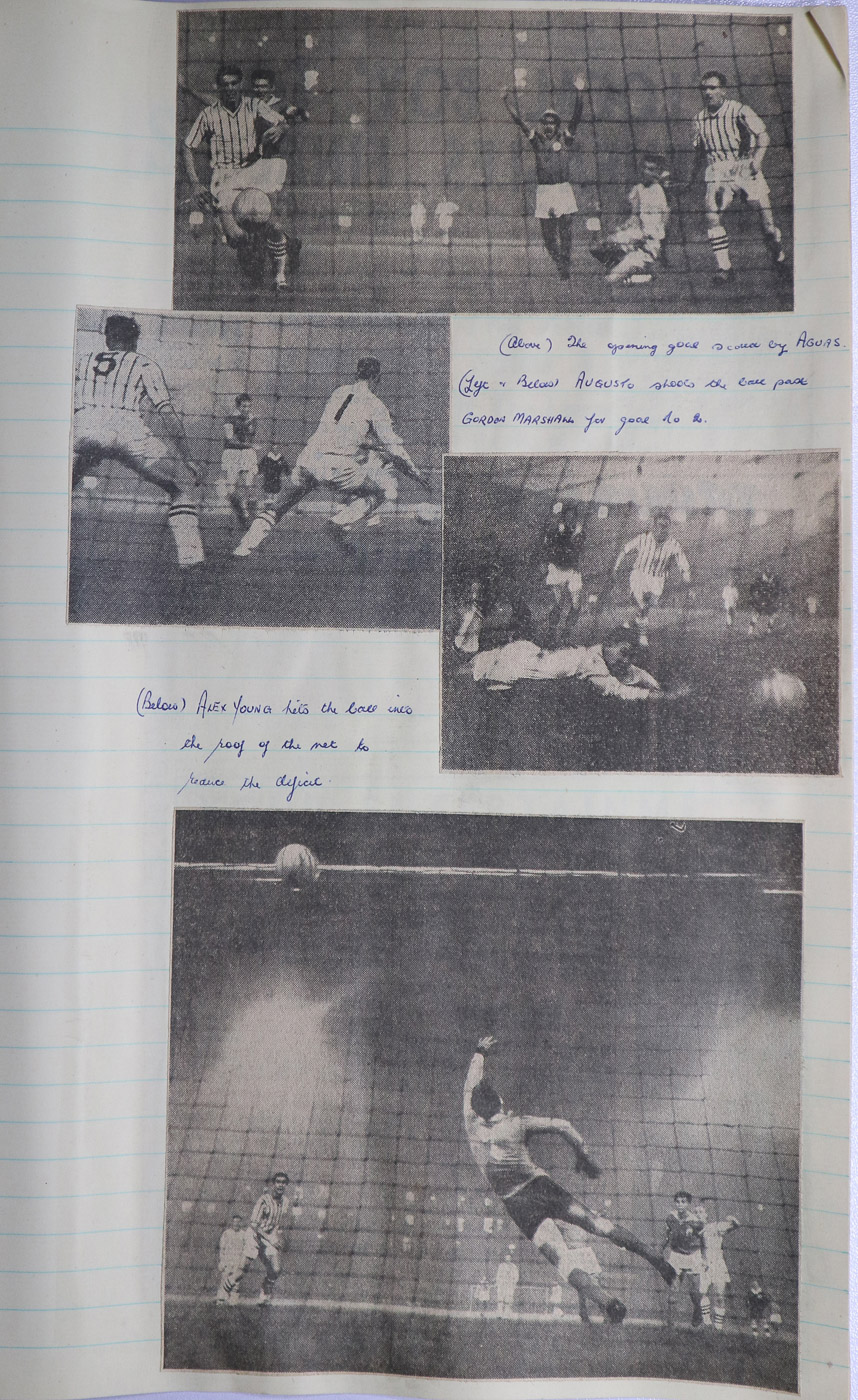 (Above) The opening goal scored by AGUAS.
(Left & Below) AUGUSTO shoots the ball past
GORDON MARSHALL for goal No 2.
5
1
(Below) ALEX YOUNG hits the ball into
the roof of the net to
reduce the deficit.